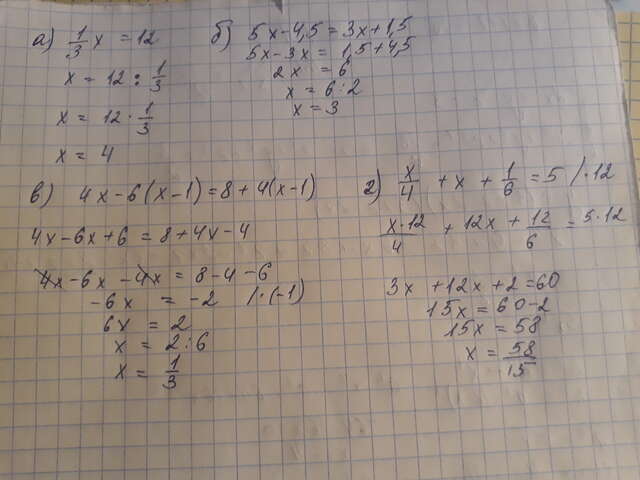 а) 1/3 x = 12
x = 12 : 1/3
x = 12 · 1/3
x = 4
б) 5x - 4,5 = 3x + 1,5
5x - 3x = 1,5 + 4,5
2x = 6
x = 6 : 2
x = 3
в) 4x - 6(x - 1) = 8 + 4(x - 1)
4x - 6x + 6 = 8 + 4x - 4
4x - 6x - 4x = 8 - 4 - 6
-6x = -2 /·(-1)
6x = 2
x = 2 : 6
x = 1/3
г) x/4 + x + 1/6 = 5 /·12
x·12/4 + 12x + 12/6 = 5·12
3x + 12x + 2 = 60
15x = 60 - 2
15x = 58
x = 58/15